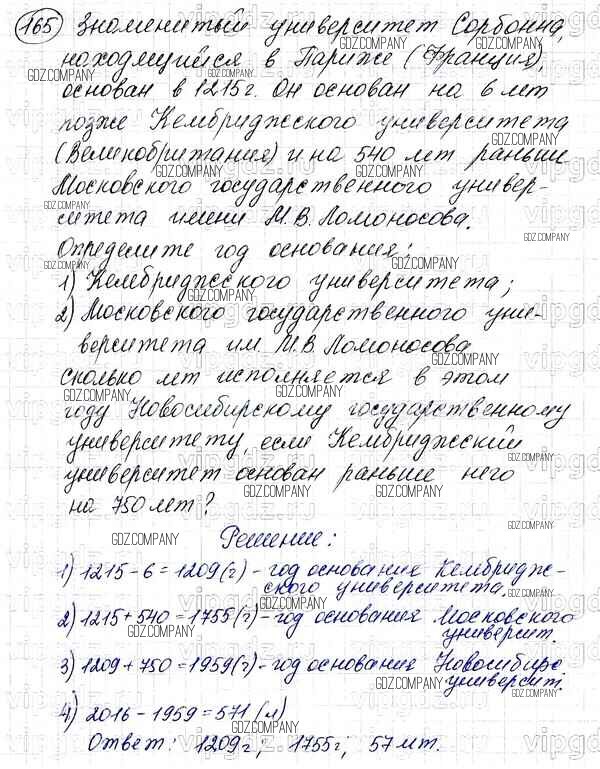 165 Знаменитый университет Сорбонна,
находящийся в Париже (Франция),
основан в 1215г. Он основан на 6 лет
позже Кембриджского университета
(Великобритания) и на 540 лет раньше
Московского государственного универ-
ситета имени М.В. Ломоносова.
Определите год основания:
1) Кембриджсского университета;
2) Московского государственного уни-
верситета им. М.В Ломоносова
сколько лет исполняется в этом
году Новосибирскому государственному
университету, если Кембриджский
университет основан раньше него
на 750 лет?
Решение:
1) 1215-6=1209(г) - год основания Кембридж-
ского университета.
2) 1215+540=1755(г) - год основания Московского
университ.
3) 1209+750=1959(г) - год основания Новосибирс
университ.
4) 2016-1959=571 (л)
Ответ: 1209г; 1755г; 57 лет.
GDZ.COMPANY
vipgdz.ru